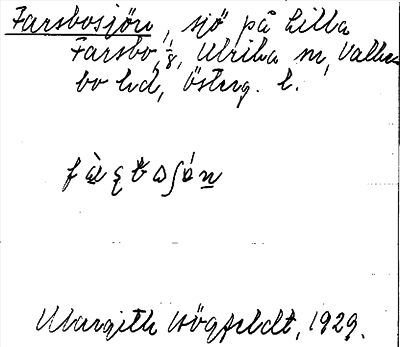 Farsbosjön, sjö på Lilla
Farsbo, 1/8, Ulrika sn, Valke
bo hd, Österg. l.
Margith Högfeldt, 1929.